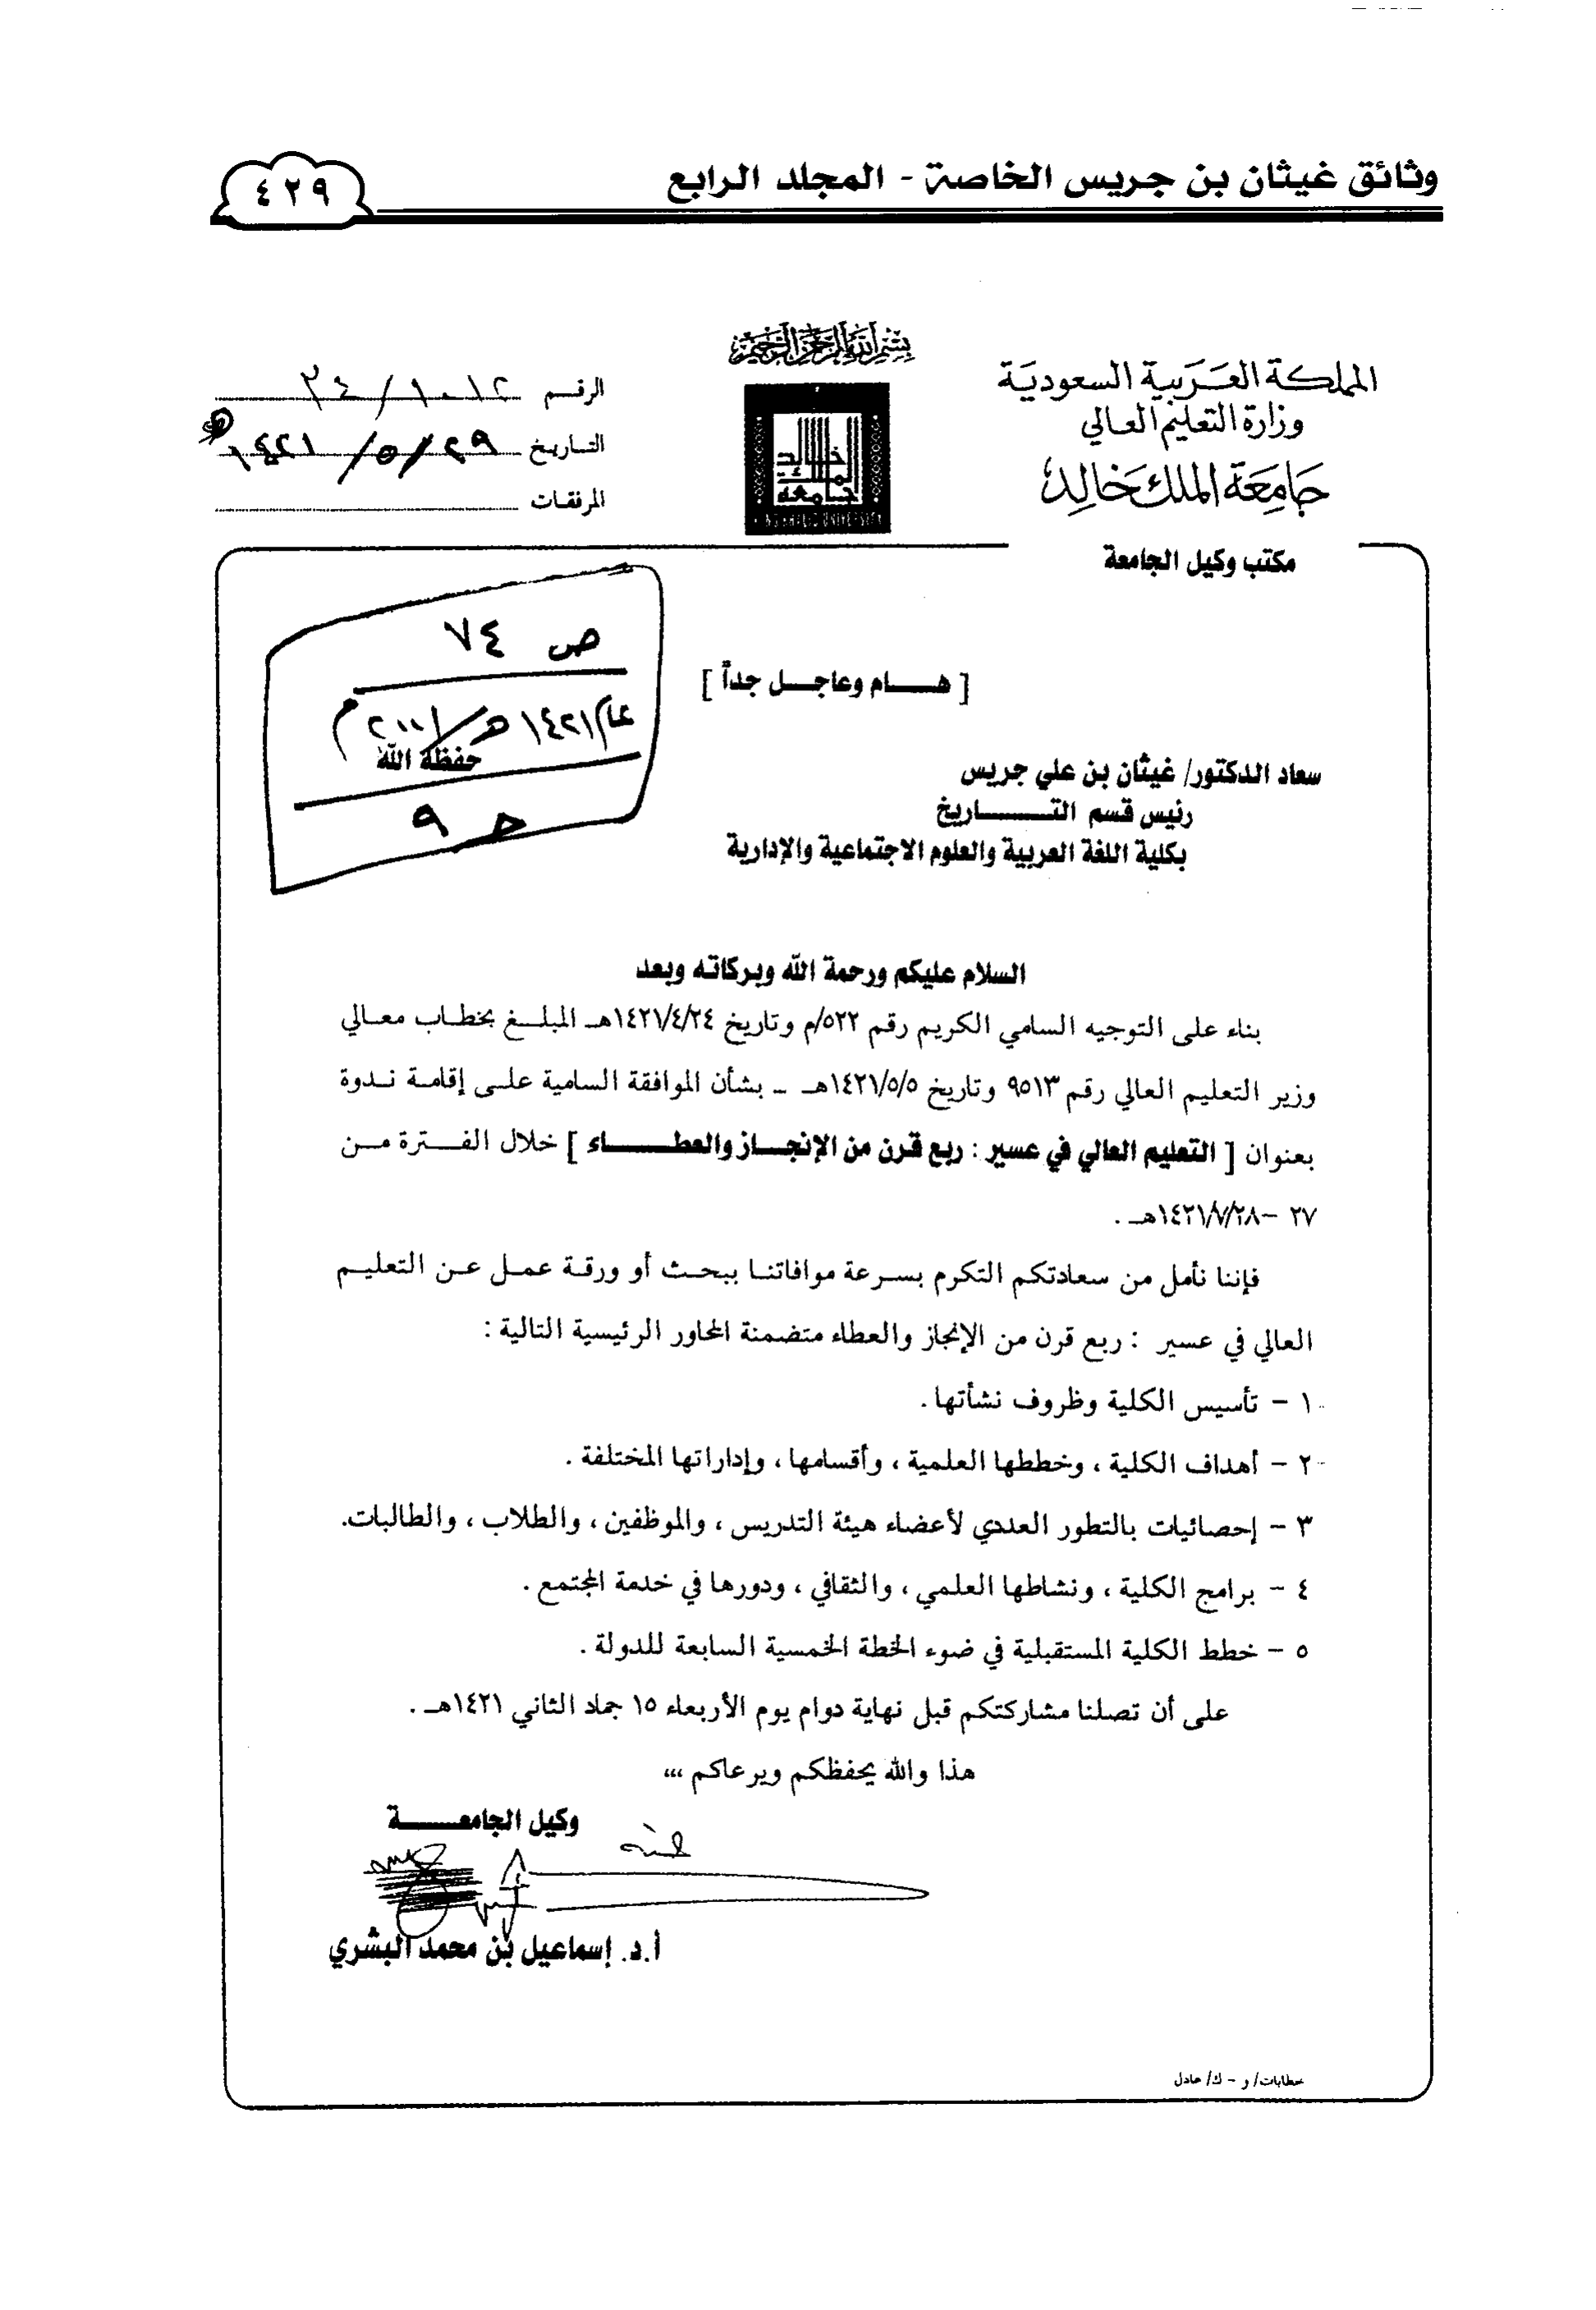 وثائق غيثان بن جريس الخاصة - المجلد الرابع
٤٢٩
بسم الله الرحمن الرحيم
المملكة العربية السعودية
وزارة التعليم العالي
جامعة الملك خالد
مكتب وكيل الجامعة
جامعة الملك خالد
KING KHALID UNIVERSITY
الرقم ٣٤/١٠١٢
التاريخ ١٤٢١/٥/٢٩
المرفقات
ص ٧٤
عام ١٤٢١هـ/٢٠٠١م
ح ٩
[ هـــام وعاجـــل جداً ]
سعاد الدكتور/ غيثان بن علي جريس حفظه الله
رئيس قسم التـــــاريخ
بكلية اللغة العربية والعلوم الاجتماعية والإدارية
السلام عليكم ورحمة الله وبركاته وبعد
بناء على التوجيه السامي الكريم رقم ٥٢٢/م وتاريخ ١٤٢١/٤/٢٤هـ المبلغ بخطاب معالي
وزير التعليم العالي رقم ٩٥١٣ وتاريخ ١٤٢١/٥/٥هـ - بشأن الموافقة السامية على إقامة ندوة
بعنوان [ التعليم العالي في عسير : ربع قرن من الإنجـــاز والعطـــــاء ] خلال الفـترة مـن
٢٧ - ١٤٢١/٧/٢٨هـ .
فإننا نأمل من سعادتكم التكرم بسرعة موافاتنا ببحث أو ورقة عمل عن التعليم
العالي في عسير : ربع قرن من الإنجاز والعطاء متضمنة المحاور الرئيسية التالية :
١ - تأسيس الكلية وظروف نشأتها .
٢ - أهداف الكلية ، وخططها العلمية ، وأقسامها ، وإداراتها المختلفة .
٣ - إحصائيات بالتطور العددي لأعضاء هيئة التدريس ، والموظفين ، والطلاب ، والطالبات.
٤ - برامج الكلية ، ونشاطها العلمي ، والثقافي ، ودورها في خدمة المجتمع .
٥ - خطط الكلية المستقبلية في ضوء الخطة الخمسية السابعة للدولة .
على أن تصلنا مشاركتكم قبل نهاية دوام يوم الأربعاء ١٥ جماد الثاني ١٤٢١هـ .
هذا والله يحفظكم ويرعاكم ،،،
وكيل الجامعـــــة
أ.د. إسماعيل بن محمد البشري
خطابات/ و - ك/ عادل